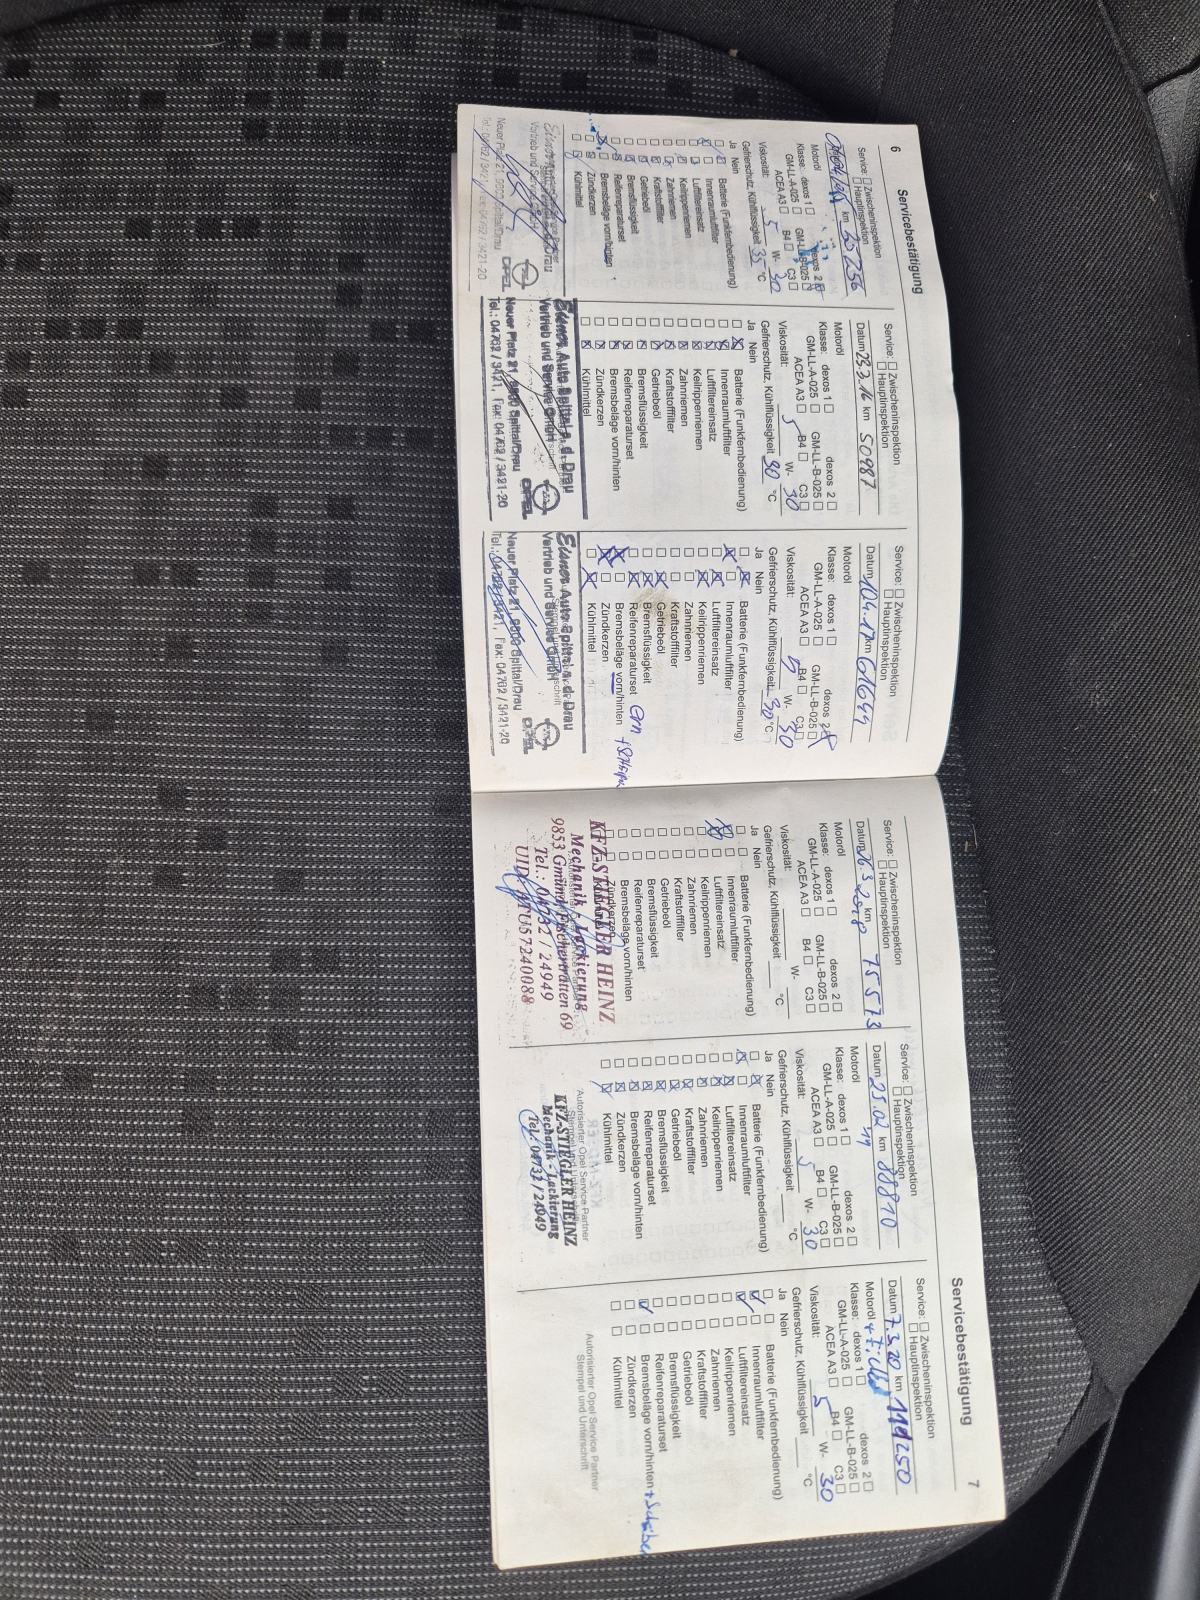 6
Servicebestätigung
Service: ☐ Zwischeninspektion
☐ Hauptinspektion
km
Motoröl
Klasse: dexos 1 ☐ dexos 2
GM-LL-A-025 ☐ GM-LL-B-025
ACEA A3 ☐ B4 ☐ C3 ☐
Viskosität: 5 W- 30
Gefrierschutz, Kühlflüssigkeit 35 °C
Ja Nein
Batterie (Funkfernbedienung)
Innenraumluftfilter
Luftfiltereinsatz
Keilrippenriemen
Zahnriemen
Kraftstofffilter
Getriebeöl
Bremsflüssigkeit
Reifenreparaturset
Bremsbeläge vorn/hinten
Zündkerzen
Kühlmittel
Neuer Platz 21, 9800 Spittal/Drau
OPEL
Service: ☐ Zwischeninspektion
☐ Hauptinspektion
Datum 23.3.16 km 50987
Motoröl
Klasse: dexos 1 ☐ dexos 2 ☐
GM-LL-A-025 ☐ GM-LL-B-025 ☐
ACEA A3 ☐ B4 ☐ C3 ☐
Viskosität: 5 W- 30
Gefrierschutz, Kühlflüssigkeit 30 °C
Ja Nein
Batterie (Funkfernbedienung)
Innenraumluftfilter
Luftfiltereinsatz
Keilrippenriemen
Zahnriemen
Kraftstofffilter
Getriebeöl
Bremsflüssigkeit
Reifenreparaturset
Bremsbeläge vorn/hinten
Zündkerzen
Kühlmittel
Eisner Auto Spittal a. d. Drau
Vertrieb und Service GmbH
Neuer Platz 21, 9800 Spittal/Drau
Tel.: 04762 / 3421, Fax: 04762 / 3421-20
OPEL
Service: ☐ Zwischeninspektion
☐ Hauptinspektion
Datum 10.4.17 km 61644
Motoröl
Klasse: dexos 1 ☐ dexos 2
GM-LL-A-025 ☐ GM-LL-B-025 ☐
ACEA A3 ☐ B4 ☐ C3 ☐
Viskosität: 5 W- 30
Gefrierschutz, Kühlflüssigkeit -30 °C
Ja Nein
Batterie (Funkfernbedienung)
Innenraumluftfilter
Luftfiltereinsatz
Keilrippenriemen
Zahnriemen
Kraftstofffilter
Getriebeöl
Bremsflüssigkeit
Reifenreparaturset
Bremsbeläge vorn/hinten
Zündkerzen
Kühlmittel
Eisner Auto Spittal a. d. Drau
Vertrieb und Service GmbH
Neuer Platz 21, 9800 Spittal/Drau
Tel.: 04762 / 3421, Fax: 04762 / 3421-20
OPEL
Servicebestätigung
7
Service: ☐ Zwischeninspektion
☐ Hauptinspektion
Datum 26.3.2018 km 75573
Motoröl
Klasse: dexos 1 ☐ dexos 2 ☐
GM-LL-A-025 ☐ GM-LL-B-025 ☐
ACEA A3 ☐ B4 ☐ C3 ☐
Viskosität: W-
Gefrierschutz, Kühlflüssigkeit °C
Ja Nein
Batterie (Funkfernbedienung)
Innenraumluftfilter
Luftfiltereinsatz
Keilrippenriemen
Zahnriemen
Kraftstofffilter
Getriebeöl
Bremsflüssigkeit
Reifenreparaturset
Bremsbeläge vorn/hinten
Zündkerzen
KFZ-STIEGLER HEINZ
Mechanik - Lackierung
9853 Gmünd, Fischertratten 69
Tel.: 04732 / 24949
UID: ATU57240088
Service: ☐ Zwischeninspektion
☐ Hauptinspektion
Datum 25.02 19 km 88810
Motoröl
Klasse: dexos 1 ☐ dexos 2 ☐
GM-LL-A-025 ☐ GM-LL-B-025 ☐
ACEA A3 ☐ B4 ☐ C3 ☐
Viskosität: 5 W- 30
Gefrierschutz, Kühlflüssigkeit °C
Ja Nein
Batterie (Funkfernbedienung)
Innenraumluftfilter
Luftfiltereinsatz
Keilrippenriemen
Zahnriemen
Kraftstofffilter
Getriebeöl
Bremsflüssigkeit
Reifenreparaturset
Bremsbeläge vorn/hinten
Zündkerzen
Kühlmittel
Autorisierter Opel Service Partner
KFZ-STIEGLER HEINZ
Mechanik - Lackierung
Tel.: 04732 / 24949
Service: ☐ Zwischeninspektion
☐ Hauptinspektion
Datum 7.3.20 km 111250
Motoröl
Klasse: dexos 1 ☐ dexos 2 ☐
GM-LL-A-025 ☐ GM-LL-B-025 ☐
ACEA A3 ☐ B4 ☐ C3 ☐
Viskosität: 5 W- 30
Gefrierschutz, Kühlflüssigkeit °C
Ja Nein
Batterie (Funkfernbedienung)
Innenraumluftfilter
Luftfiltereinsatz
Keilrippenriemen
Zahnriemen
Kraftstofffilter
Getriebeöl
Bremsflüssigkeit
Reifenreparaturset
Bremsbeläge vorn/hinten + Scheiben
Zündkerzen
Kühlmittel
Autorisierter Opel Service Partner
Stempel und Unterschrift